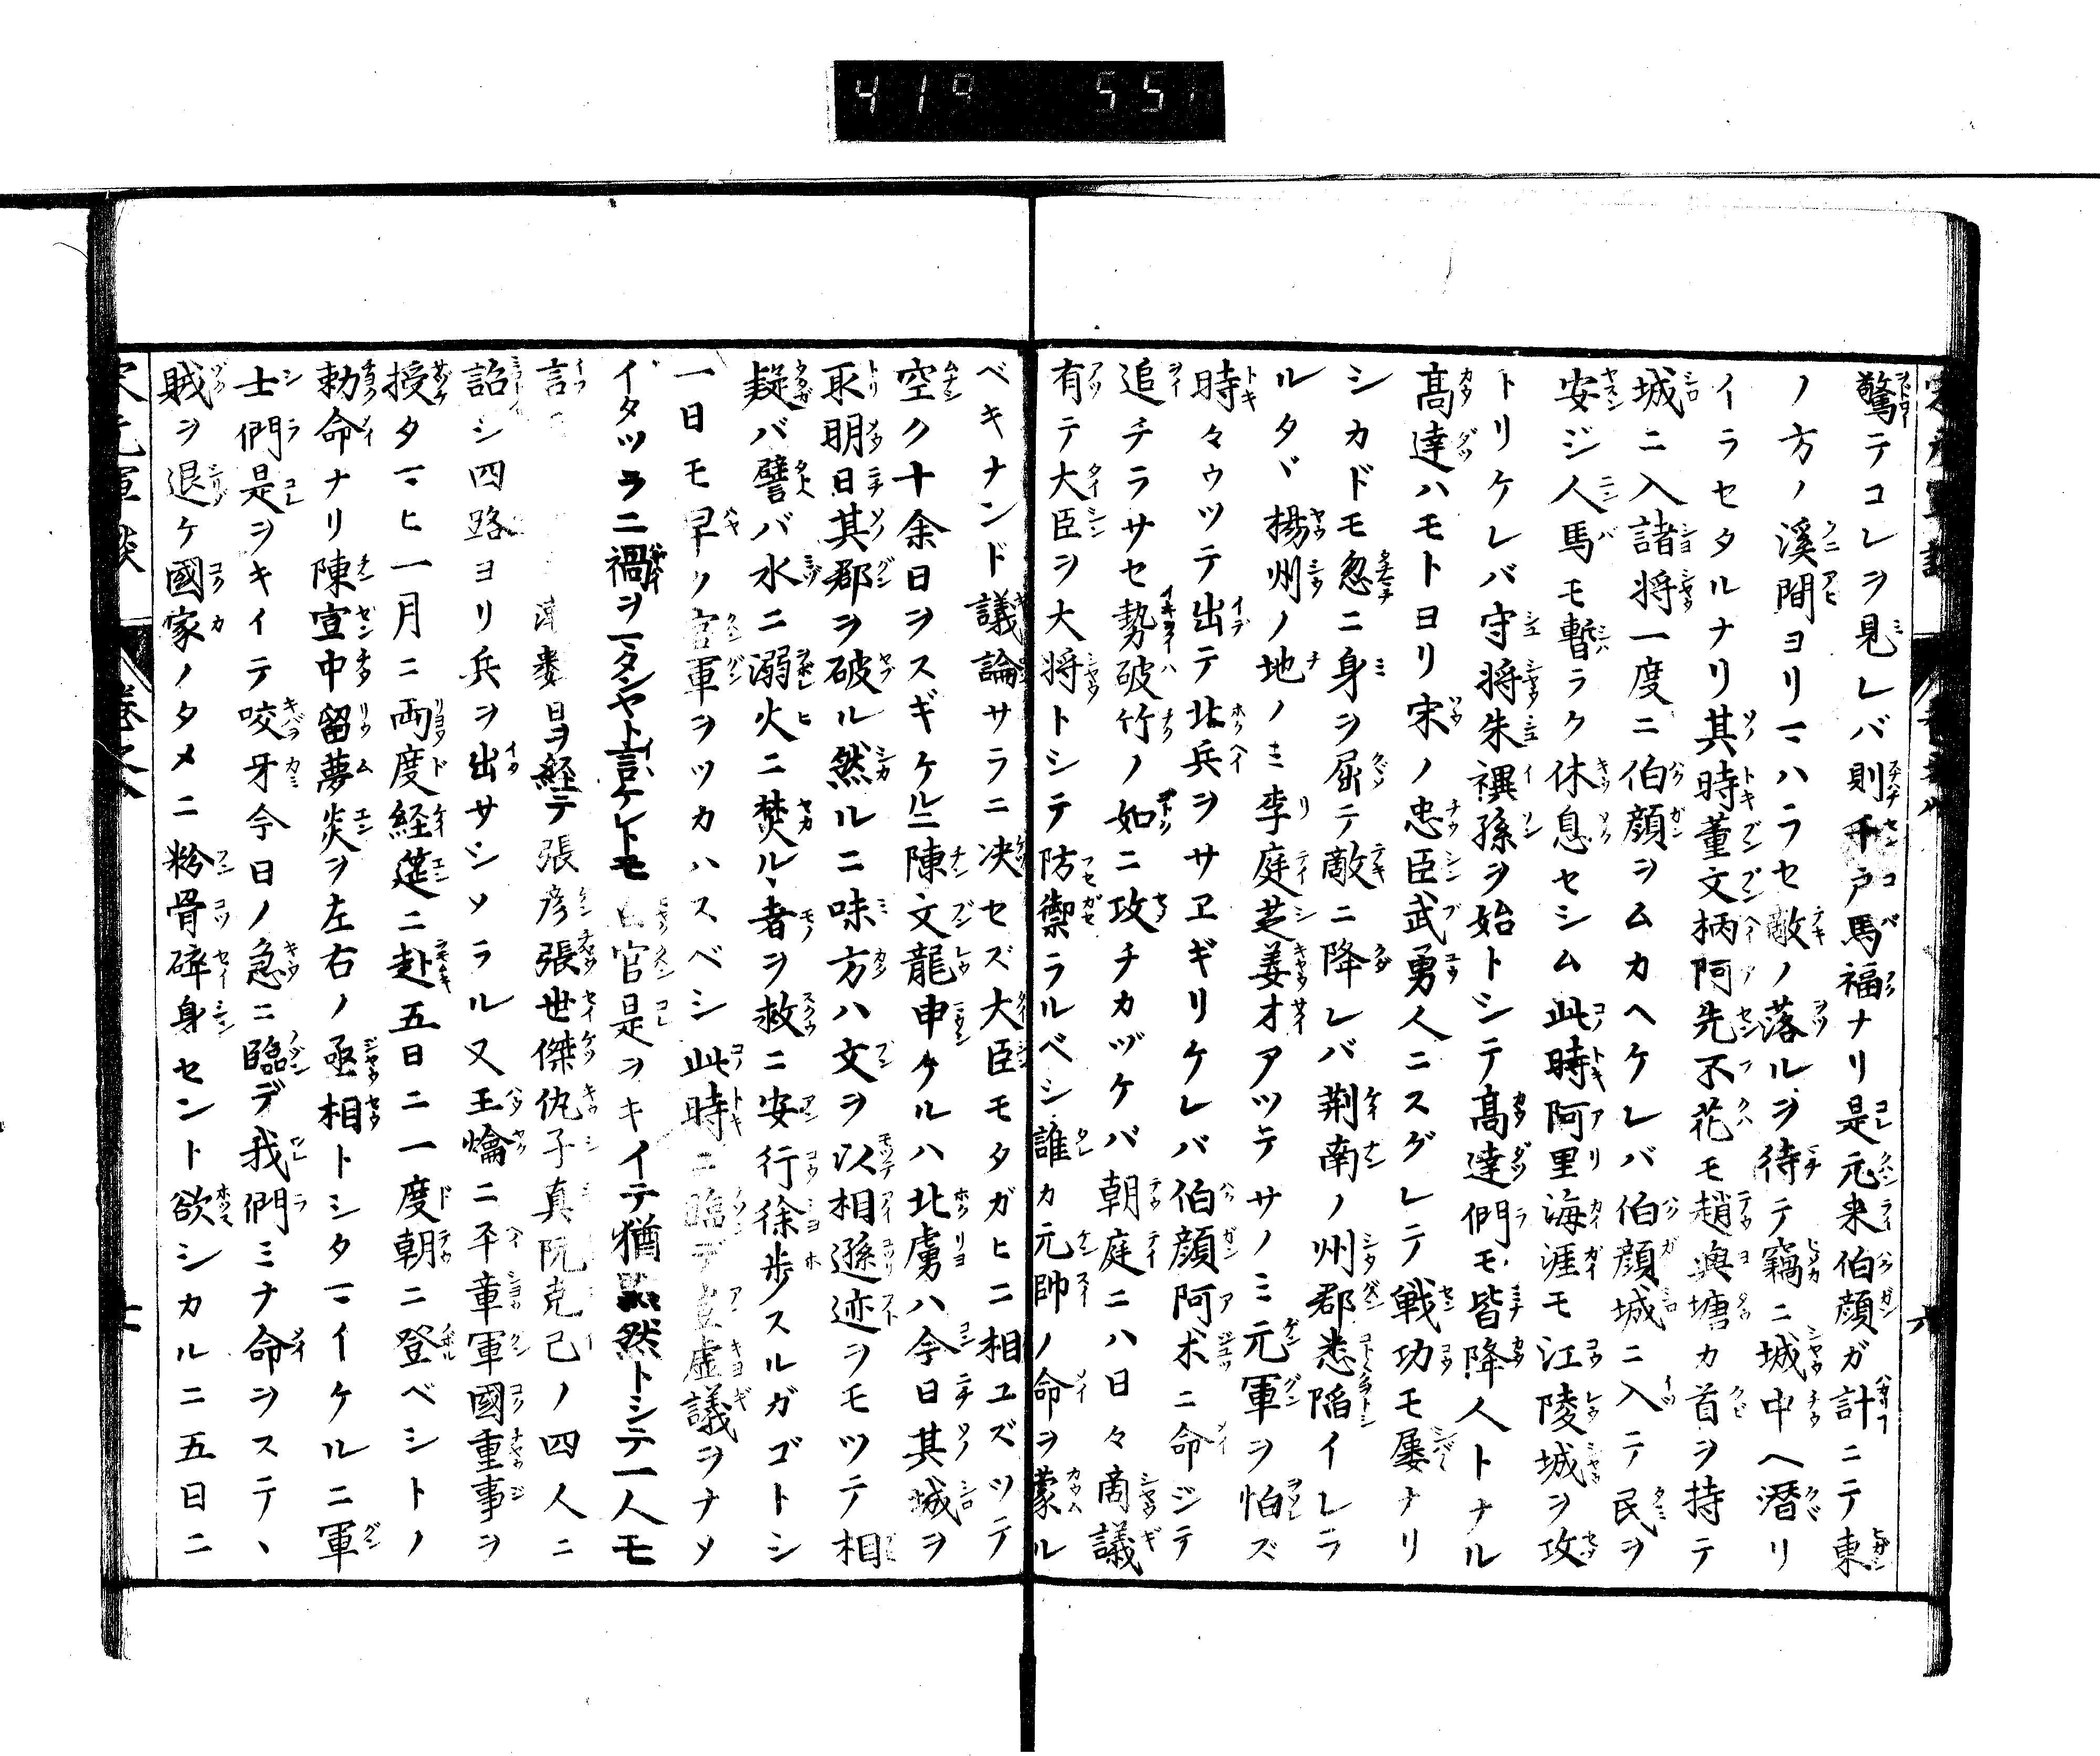 419 551
驚テコレヲ見レバ則千戸馬福ナリ是元来伯顔ガ計ニテ東
ノ方ノ溪間ヨリマハラセ敵ノ落ルヽヲ待テ竊ニ城中ヘ潜リ
イラセタルナリ其時董文柄阿先不花モ趙與塘カ首ヲ持テ
城ニ入諸将一度ニ伯顔ヲムカヘケレバ伯顔城ニ入テ民ヲ
安ジ人馬モ暫ラク休息セシム此時阿里海涯モ江陵城ヲ攻
トリケレバ守将朱禩孫ヲ始トシテ髙達們モ皆降人トナル
髙達ハモトヨリ宋ノ忠臣武勇人ニスグレテ戦功モ屢ナリ
シカドモ忽ニ身ヲ屈テ敵ニ降レバ荆南ノ州郡悉陥イレラ
ルタヾ楊州ノ地ノミ李庭芝姜才アツテサノミ元軍ヲ怕ズ
時々ウツテ出テ北兵ヲサヱギリケレバ伯顔阿术ニ命ジテ
追チラサセ勢破竹ノ如ニ攻チカヅケバ朝庭ニハ日々商議
有テ大臣ヲ大将トシテ防禦ラルベシ誰カ元帥ノ命ヲ蒙ル
ベキナンド議論サラニ决セズ大臣モタガヒニ相ユズツテ
空ク十余日ヲスギケルニ陳文龍申ケルハ北虜ハ今日其城ヲ
取明日其郡ヲ破ル然ルニ味方ハ文ヲ以相遜迹ヲモツテ相
疑バ譬バ水ニ溺火ニ焚ルヽ者ヲ救ニ安行徐歩スルガゴトシ
一日モ早ク官軍ヲツカハスベシ此時ニ臨デ豈虚議ヲナメ
イタツラニ禍ヲマタンヤト言ケレトモ 官是ヲキイテ猶黙然トシテ一人モ
言 數日ヲ経テ張彦張世傑仇子真阮克己ノ四人ニ
詔シ四路ヨリ兵ヲ出サシメラル又王爚ニ平章軍國重事ヲ
授タマヒ一月ニ両度経筵ニ赴五日ニ一度朝ニ登ベシトノ
勅命ナリ陳宣中留夢炎ヲ左右ノ丞相トシタマイケルニ軍
士們是ヲキイテ咬牙今日ノ急ニ臨デ我們ミナ命ヲステヽ
賊ヲ退ケ國家ノタメニ粉骨碎身セント欲シカルニ五日ニ